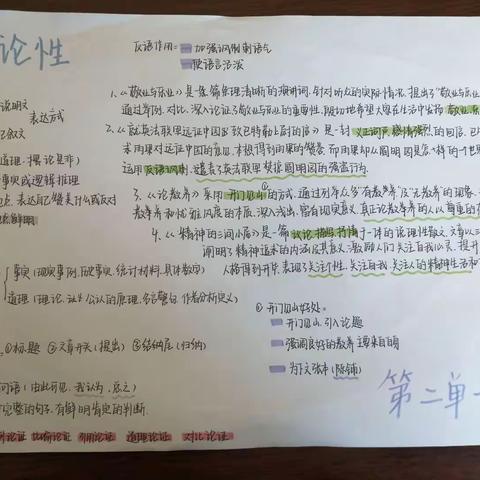 论性
反语作用：加强讽刺语气
使语言活泼
说明文
表达方式
记叙文
1.《敬业与乐业》是一篇条理清晰的演讲词，针对听众的实际情况，提出了"敬业与乐业"
通过举例、对比，深入论证了敬业与乐业的重要性，殷切地希望大家在生活中发扬敬业、乐
2.《就英法联军远征中国致巴特勒上尉的信》是一封义正词严、感情强烈的回信，巴
运用反语讽刺，谴责了英法联军焚掠圆明园的强盗行为。
道理、摆论是非）
事实或逻辑推理
3.《论教养》采用开门见山①的方式，通过列举众多"有教养"及"无教养"的现象
教养和优雅风度的本质，深入浅出，富有现实意义，真正论教养的人以尊重的
4.《精神的三间小屋》是一篇议论、描写、抒情于一体的说理性散文
阐明了精神追求的内涵及其意义，激励人们关注自我心灵，提升
人格得到升华，表现了关注个性，关注自我，关注人的精神生活
事实（现实事例，历史事实，统计材料，具体数字）
道理（理论，公认的原理，名言警句，作者分析定义）
①开门见山好处：
开门见山，引入论题
强调良好的教养
为下文张本（陈铺）
①标题 ②文章开头（提出） ③结尾（归纳）
词语（由此可见，我认为，总之）
完整的句子，有鲜明肯定的判断.
论证 比喻论证 引用论证 道理论证 对比论证
第二单